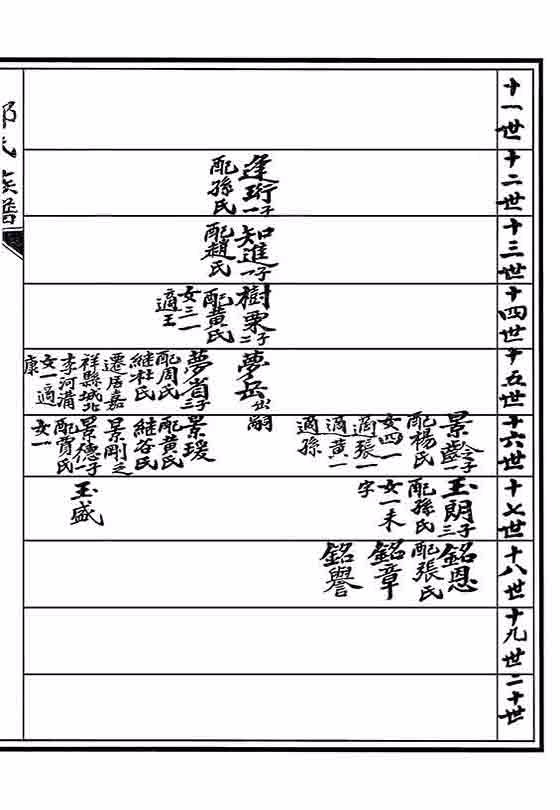 十一世
十二世
十三世
十四世
十五世
十六世
十七世
十八世
十九世
二十世
逢珩一子
配孫氏
知進一子
配趙氏
樹栗二子
配黄氏
女三一
適王
夢岳出嗣
夢省三子
配周氏
継杜氏
遷居嘉
祥縣城北
李河浦
女一適
康
景齡一子
配楊氏
女四一
適張一
適黄一
適孫
景瑗
配黄氏
継谷氏
景剛之
景德一子
配賈氏
女一
玉朗三子
配孫氏
女一未
字
玉盛
銘恩
配張氏
銘章
銘譽
氏族譜